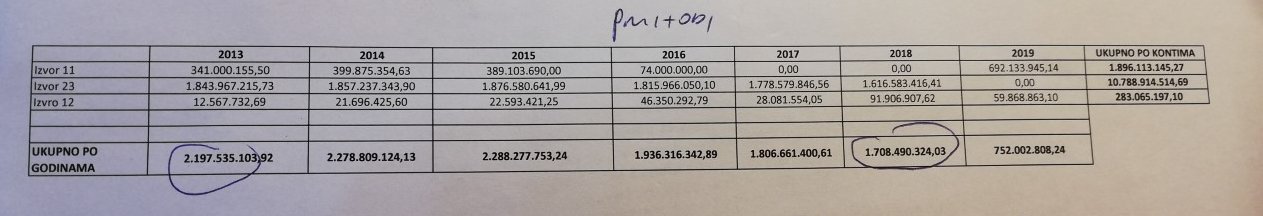 2013 2014 2015 2016 2017 2018 2019 UKUPNO PO KONTIMA
Izvor 11 341.000.155,50 399.875.354,63 389.103.690,00 74.000.000,00 0,00 0,00 692.133.945,14 1.896.113.145,27
Izvor 23 1.843.967.215,73 1.857.237.343,90 1.876.580.641,99 1.815.966.050,10 1.778.579.846,56 1.616.583.416,41 0,00 10.788.914.514,69
Izvro 12 12.567.732,69 21.696.425,60 22.593.421,25 46.350.292,79 28.081.554,05 91.906.907,62 59.868.863,10 283.065.197,10
UKUPNO PO
GODINAMA 2.197.535.103,92 2.278.809.124,13 2.288.277.753,24 1.936.316.342,89 1.806.661.400,61 1.708.490.324,03 752.002.808,24